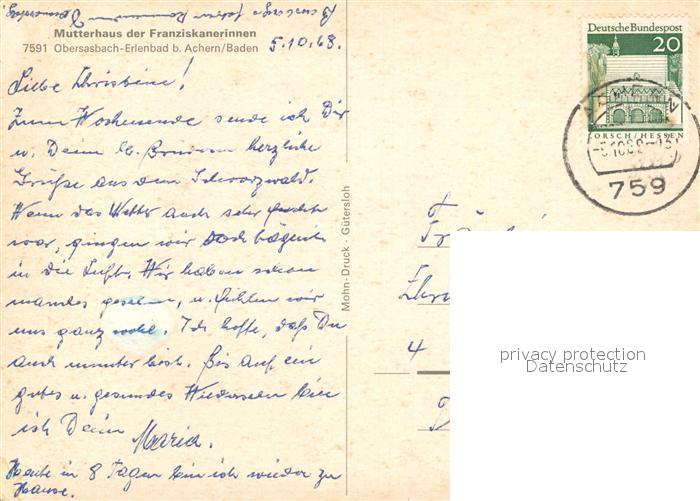 Mutterhaus der Franziskanerinnen
7591 Obersasbach-Erlenbad b. Achern/Baden
5.10.68.
Liebe Christine!
Zum Wochenende sende ich Dir
u. Deinem lb. Bruder herzliche
Grüße aus dem Schwarzwald.
Wenn das Wetter auch sehr feucht
war, gingen wir doch täglich
in die Luft. Wir haben schon
manches gesehen, u. fühlen wir
uns ganz wohl. Ich hoffe, daß Du
auch munter bist. Bis auf ein
gutes u. gesundes Wiedersehen bin
ich Deine Maria.
Heute in 8 Tagen bin ich wieder zu
Hause.
Mohn-Druck · Gütersloh
Deutsche Bundespost
20
LORSCH/HESSEN
759
4
privacy protection
Datenschutz